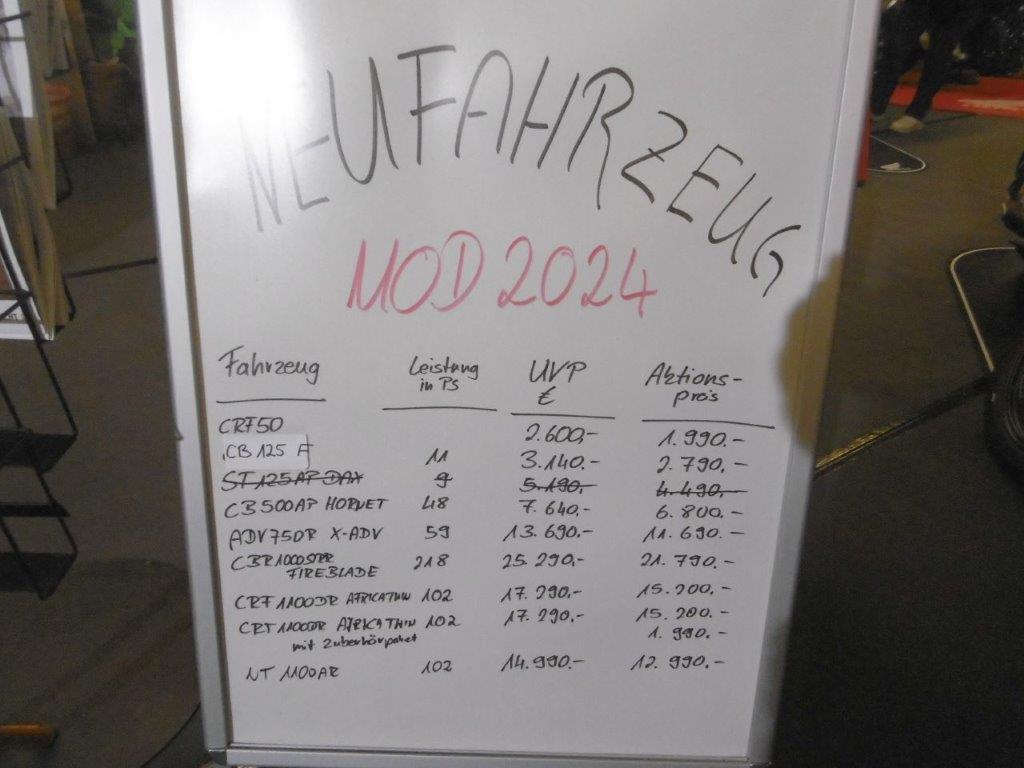 NEUFAHRZEUG
MOD 2024
Fahrzeug Leistung in PS UVP € Aktions-preis
CRF50 2.600,- 1.990.-
CB 125 F 11 3.140.- 2.790,-
ST 125AP DAX 9 5.190,- 4.490,-
CB500AP HORNET 48 7.640,- 6.800.-
ADV750R X-ADV 59 13.690,- 11.690.-
CBR1000SPR 218 25.290,- 21.790.-
FIREBLADE
CRF 1100DR AFRICATWIN 102 17.290.- 15.200.-
CRF 1100DR AFRICATWIN 102 17.290.- 15.200.-
mit Zuberhörpaket 1.990.-
NT 1100AR 102 14.990.- 12.990.-